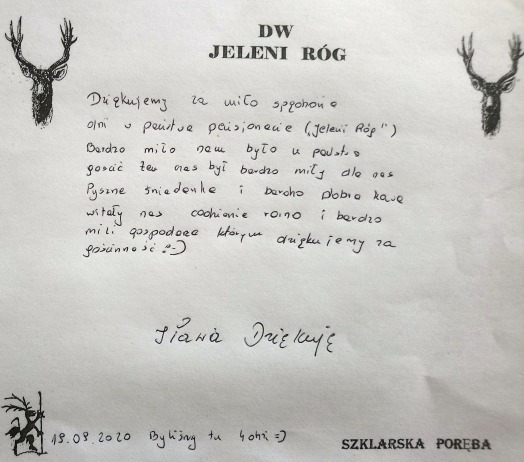 DW
JELENI RÓG
Dziękujemy za miło spędzone
dni u państwa pensjonacie („Jeleni Róg")
Bardzo miło nam było u państwa
gościć ten czas był bardzo miły dla nas
Pyszne śniadanka i bardzo dobra kawa
witały nas codzienie rano i bardzo
mili gospodaze którym dziękujemy za
gościnność :)
Dziękuję
19.09.2020 Byliśmy tu 4 dni =)
SZKLARSKA PORĘBA